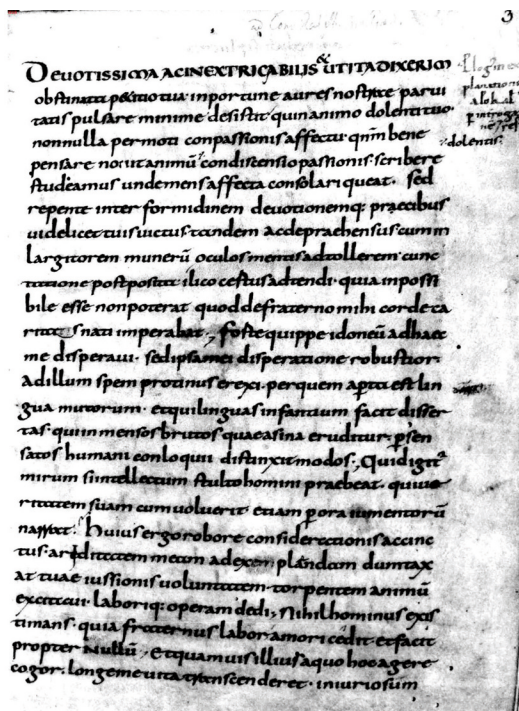 3
DEVOTISSIMA AC INEXTRICABILIS UT ITA DIXERIM
obstinata petitio tua inportune aures nostrae parui
tatis pulsare minime desistit quin animo dolenti tuo
nonnulla permoti conpassionis affectu qm̄ bene
dolentis
pensare nouit animū condiscensio passionis scribere
studeamus unde mens affecta consolari queat. Sed
repente inter formidinem deuotionemq; praecibus
uidelicet tuis uictus tandem ac depraehensus cum in
largitorem munerū oculos mentis adtollerem cunc
tatione postposita ilico cestus adtendi. quia inpossi
bile esse non poterat quod de fraterno mihi corde ca
ritas nati imperabat; Foste quippe idoneū ad haec
me disperaui. sed ipsa mei disperatione robustior.
ad illum spem protinus erexi. per quem aperta est lin
gua mutorum. et qui linguas infantium facit disser
tas. qui inmensos brutos quae asina eruditur. p sen
satos humani conloquii distinxit modos; Quid igit
mirum si intellectum stulto homini praebeat. qui ue
ritatem suam cum uoluerit etiam p ora iumentorū
narrat. huius ergo robore considerectionis accinc
tus. ariditatem meam ad exemplandam dumtax
at tuae iussionis uoluntatem torpentem animū
excitaui. laboriq; operam dedi; Nihil hominus exis
timans. quia fraternus labor amori cedit et facit
propter Nullū; Et quamuis illius a quo hoc agere
cogor. longe me uita transcenderet. iniuriosum